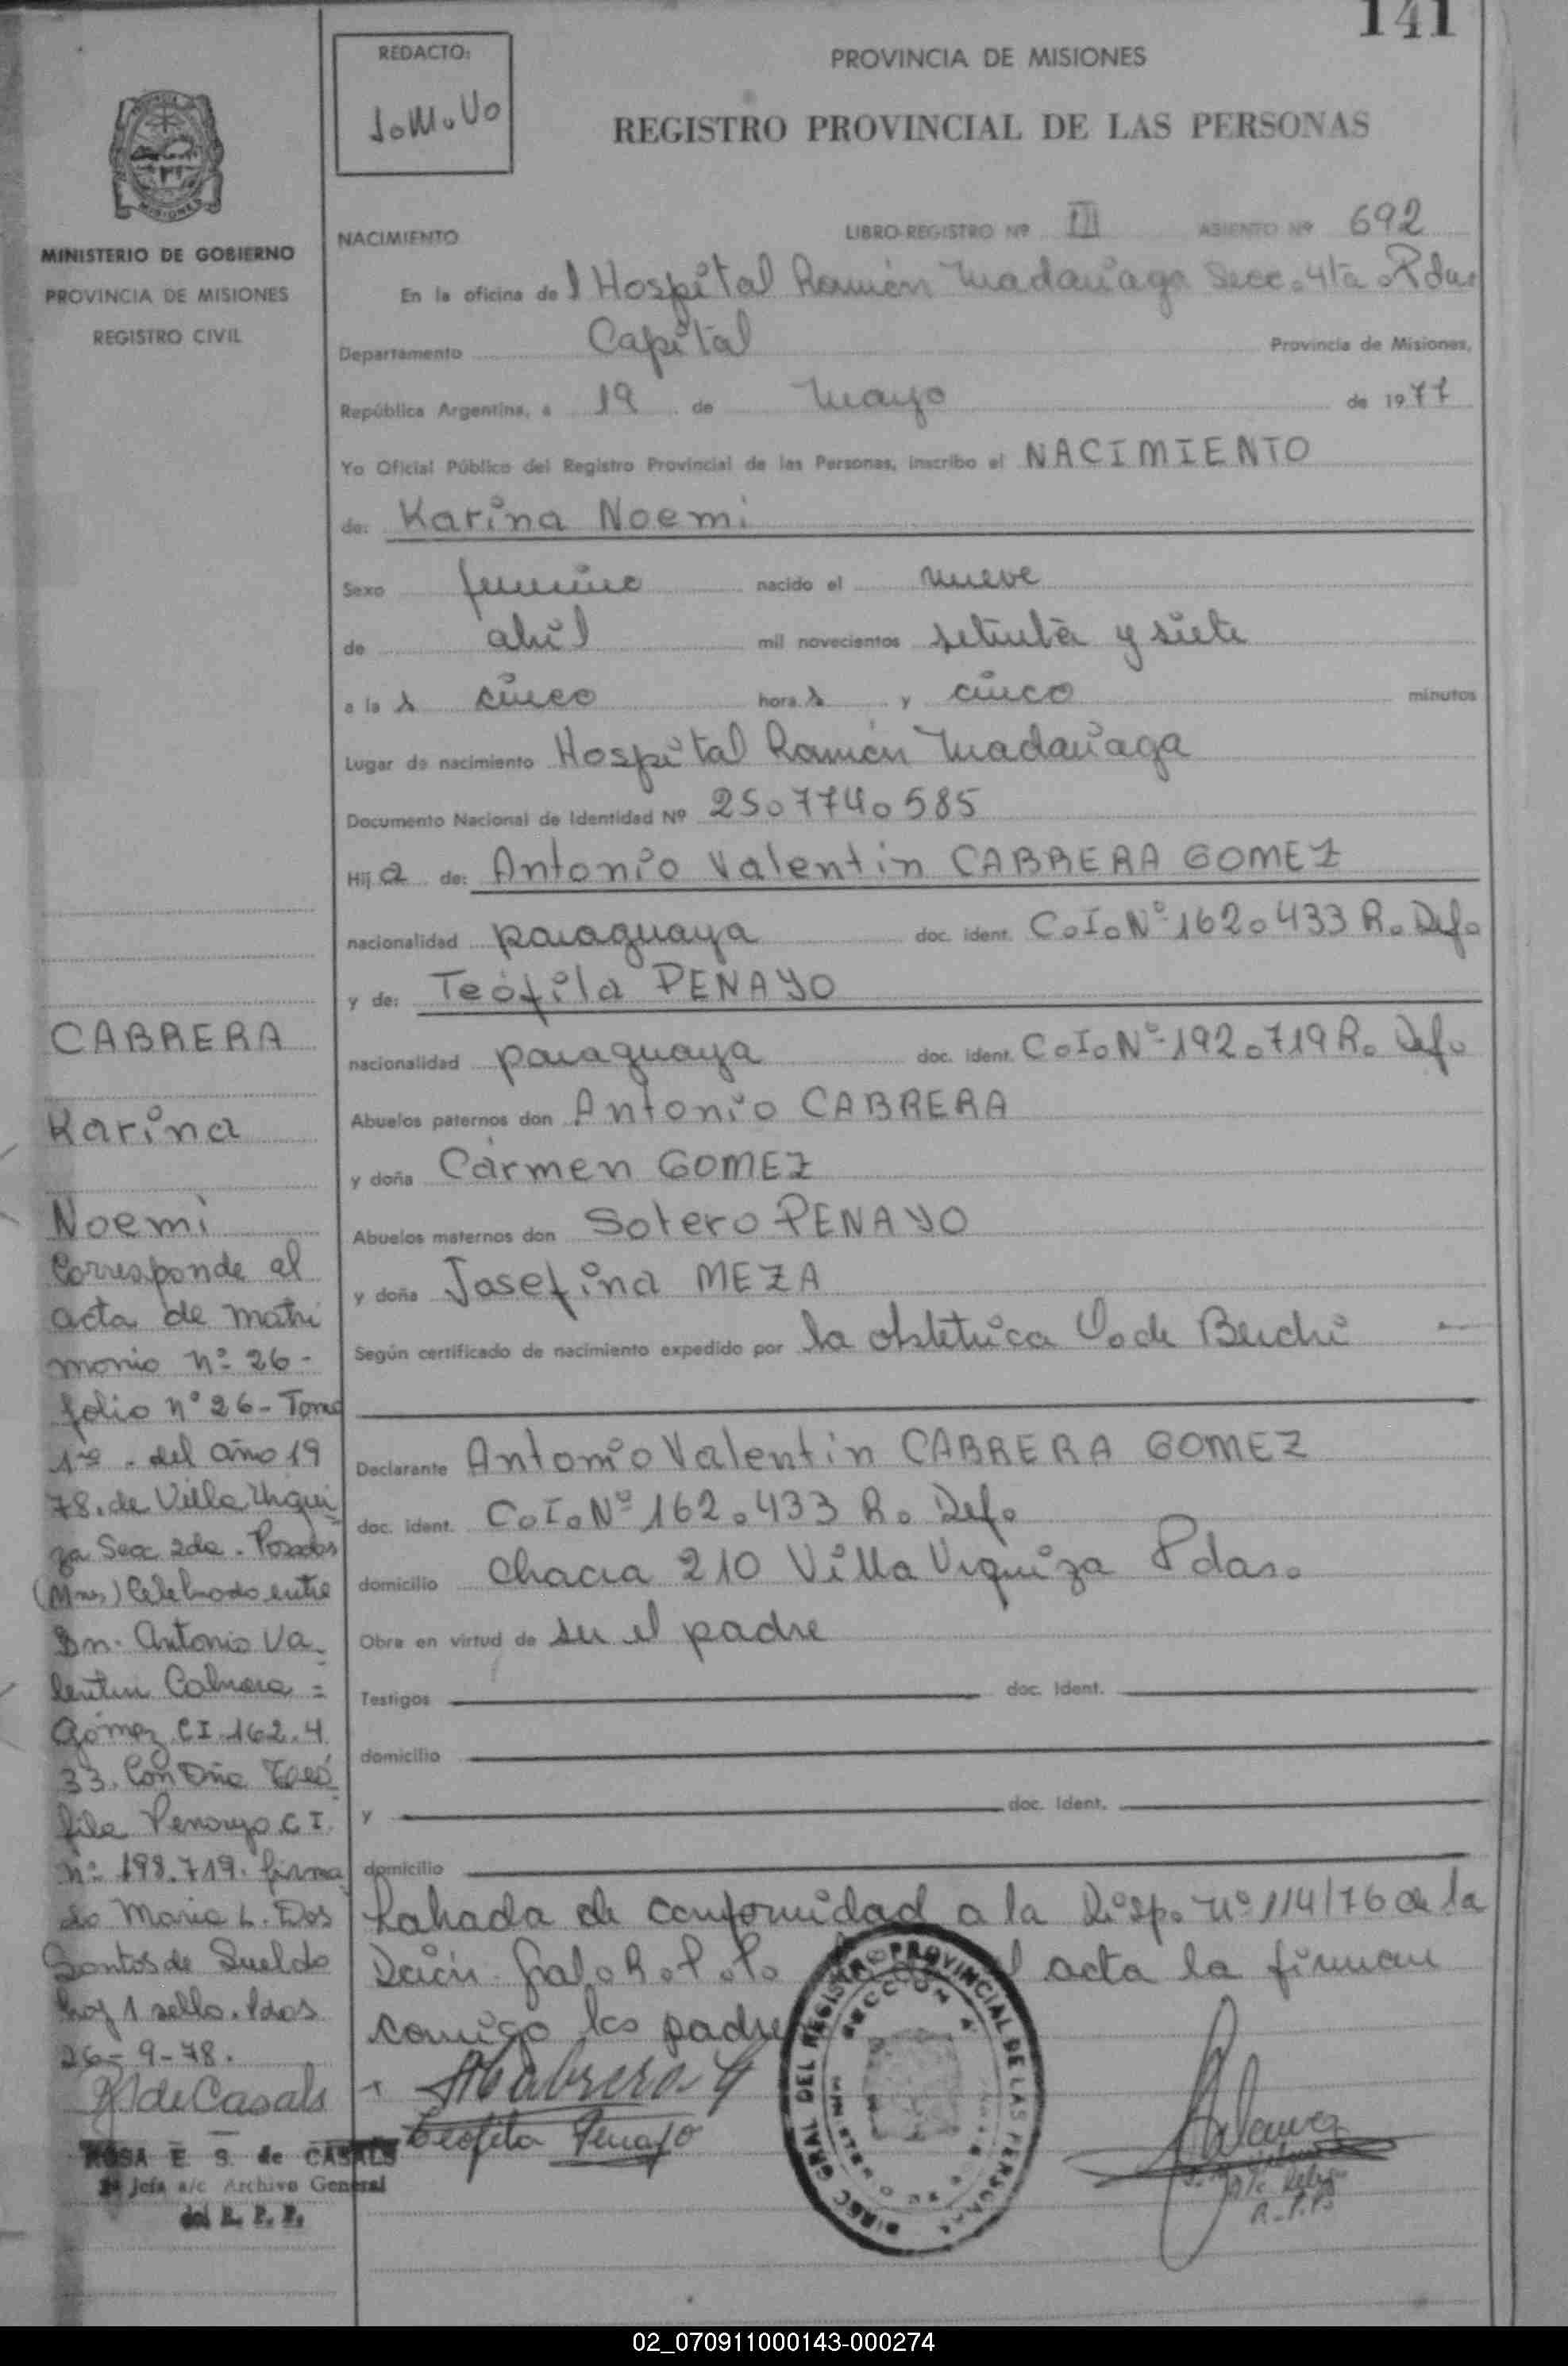 141
REDACTO:
J.M.V.
PROVINCIA DE MISIONES
REGISTRO PROVINCIAL DE LAS PERSONAS
MISIONES
MINISTERIO DE GOBIERNO
PROVINCIA DE MISIONES
REGISTRO CIVIL
NACIMIENTO LIBRO-REGISTRO Nº III ASIENTO Nº 692
En la oficina del Hospital Ramón Madariaga Secc. 4ta Pdas
Departamento Capital Provincia de Misiones,
República Argentina, a 19 de Mayo de 1977
Yo Oficial Público del Registro Provincial de las Personas, inscribo el NACIMIENTO
de: Karina Noemi
Sexo femenino nacido el nueve
de abril mil novecientos setenta y siete
a las cinco horas y cinco minutos
Lugar de nacimiento Hospital Ramón Madariaga
Documento Nacional de Identidad Nº 25.774.585
Hija de: Antonio Valentin CABRERA GOMEZ
nacionalidad paraguaya doc. ident. C.I.Nº 162.433 R. Def.
y de: Teófila PENAYO
nacionalidad paraguaya doc. ident. C.I.Nº 192.719 R. Def.
Abuelos paternos don Antonio CABRERA
y doña Carmen GOMEZ
Abuelos maternos don Sotero PENAYO
y doña Josefina MEZA
Según certificado de nacimiento expedido por la obstetrica V. de
Declarante Antonio Valentin CABRERA GOMEZ
doc. ident. C.I.Nº 162.433 R. Def.
domicilio Chacra 210 Villa Urquiza Pdas.
Obra en virtud de ser el padre
Testigos doc. ident.
domicilio
y doc. ident.
domicilio
Labrada de conformidad a la Disp. nº 114/76 de la
Dción. Gral. R.P.P. acta la firman
comigo los padre
A Cabrera G
Teofila Penayo
DIREC. GRAL DEL REGISTRO PROVINCIAL DE LAS PERSONAS
SECCION 4
R.P.P.
CABRERA
Karina
Noemi
Corresponde al
acta de matri
monio nº 26-
folio nº 26 - Tomo
1ro. del año 19
78. de Villa Urqui
za Secc 2da. Posadas
(Mnes) Celebrado entre
Dn. Antonio Va
lentin Cabrera =
Gómez CI. 162.4
33. Con Dña Teó
fila Penayo C I.
nº 198.719. firma
do Maria L. Dos
Santos de Sueldo
hay 1 sello. Pdas
26-9-78.
R de Casals
ROSA E. S. de CASALS
2ª Jefa a/c Archivo General
del R. P. P.
02_070911000143-000274